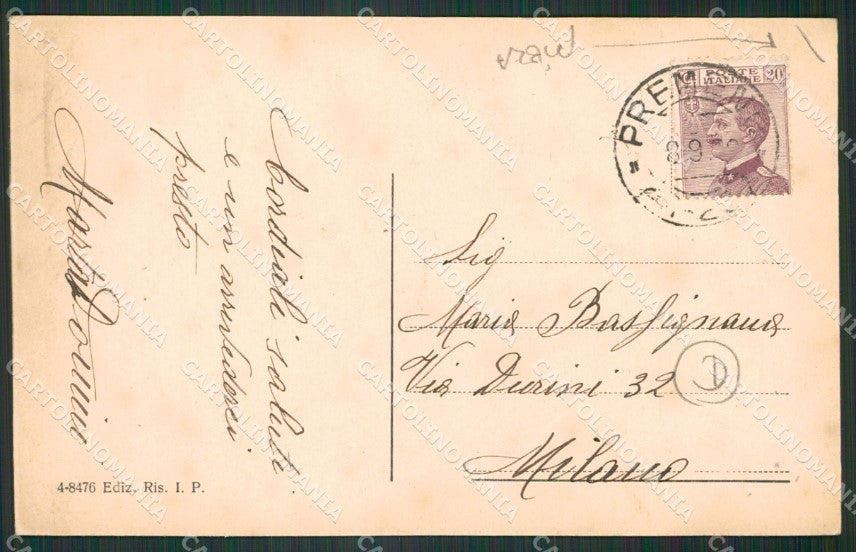 POSTE
ITALIANE
20
8 9
Cordiali saluti
e un arrivederci
presto
Sig
Maria Bassignana
Via Durini 32
Milano
4-8476 Ediz. Ris. I. P.
CARTOLINOMANIA